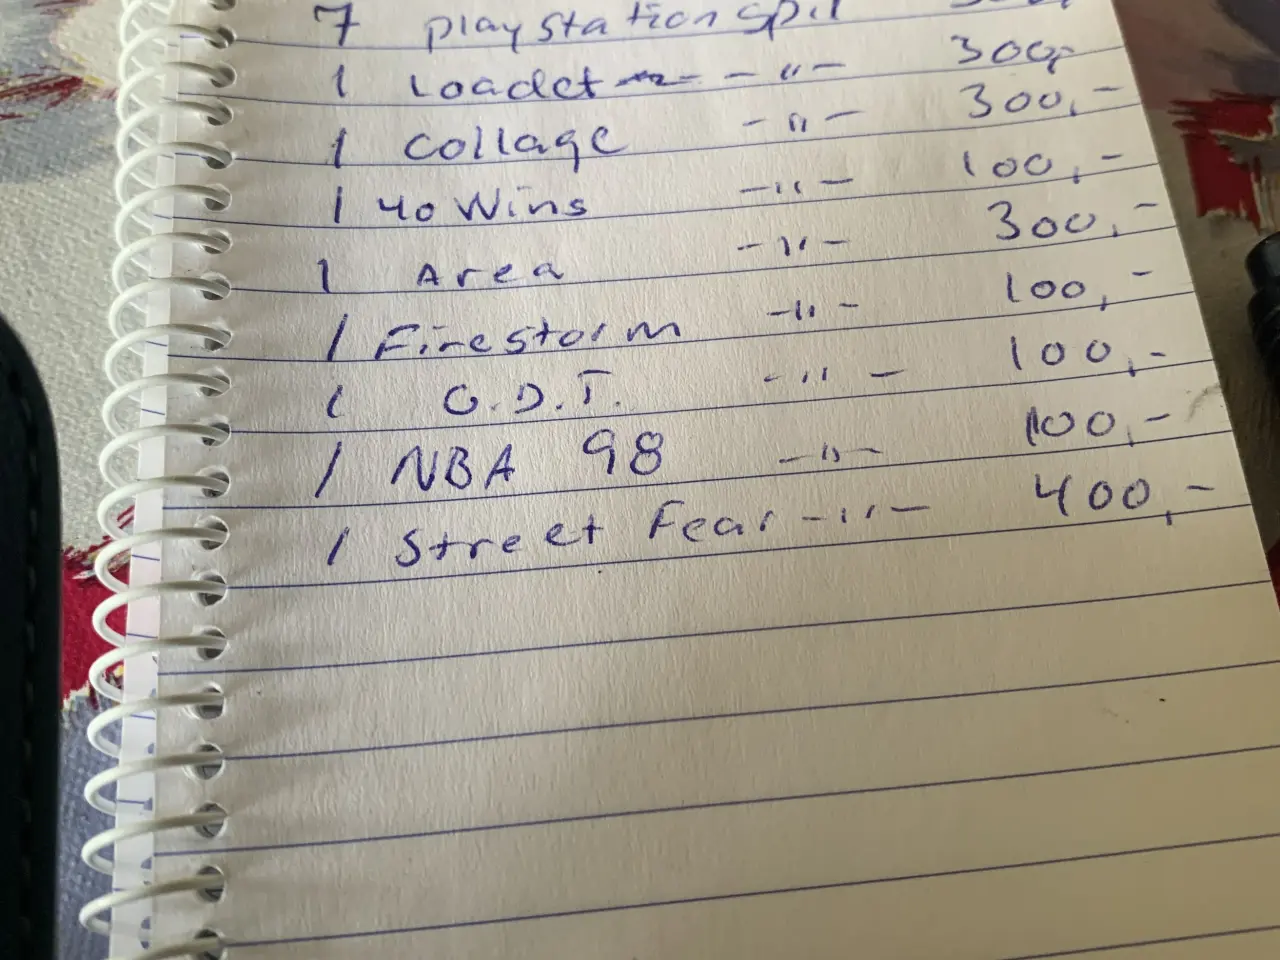 7 playstationspil
1 Loadet - -"- 300,-
1 Collage -"- 300,-
1 40 Wins -"- 100,-
1 Area -"- 300,-
1 Firestorm -"- 100,-
1 O.D.T. -"- 100,-
1 NBA 98 -"- 100,-
1 Street Fear -"- 400,-